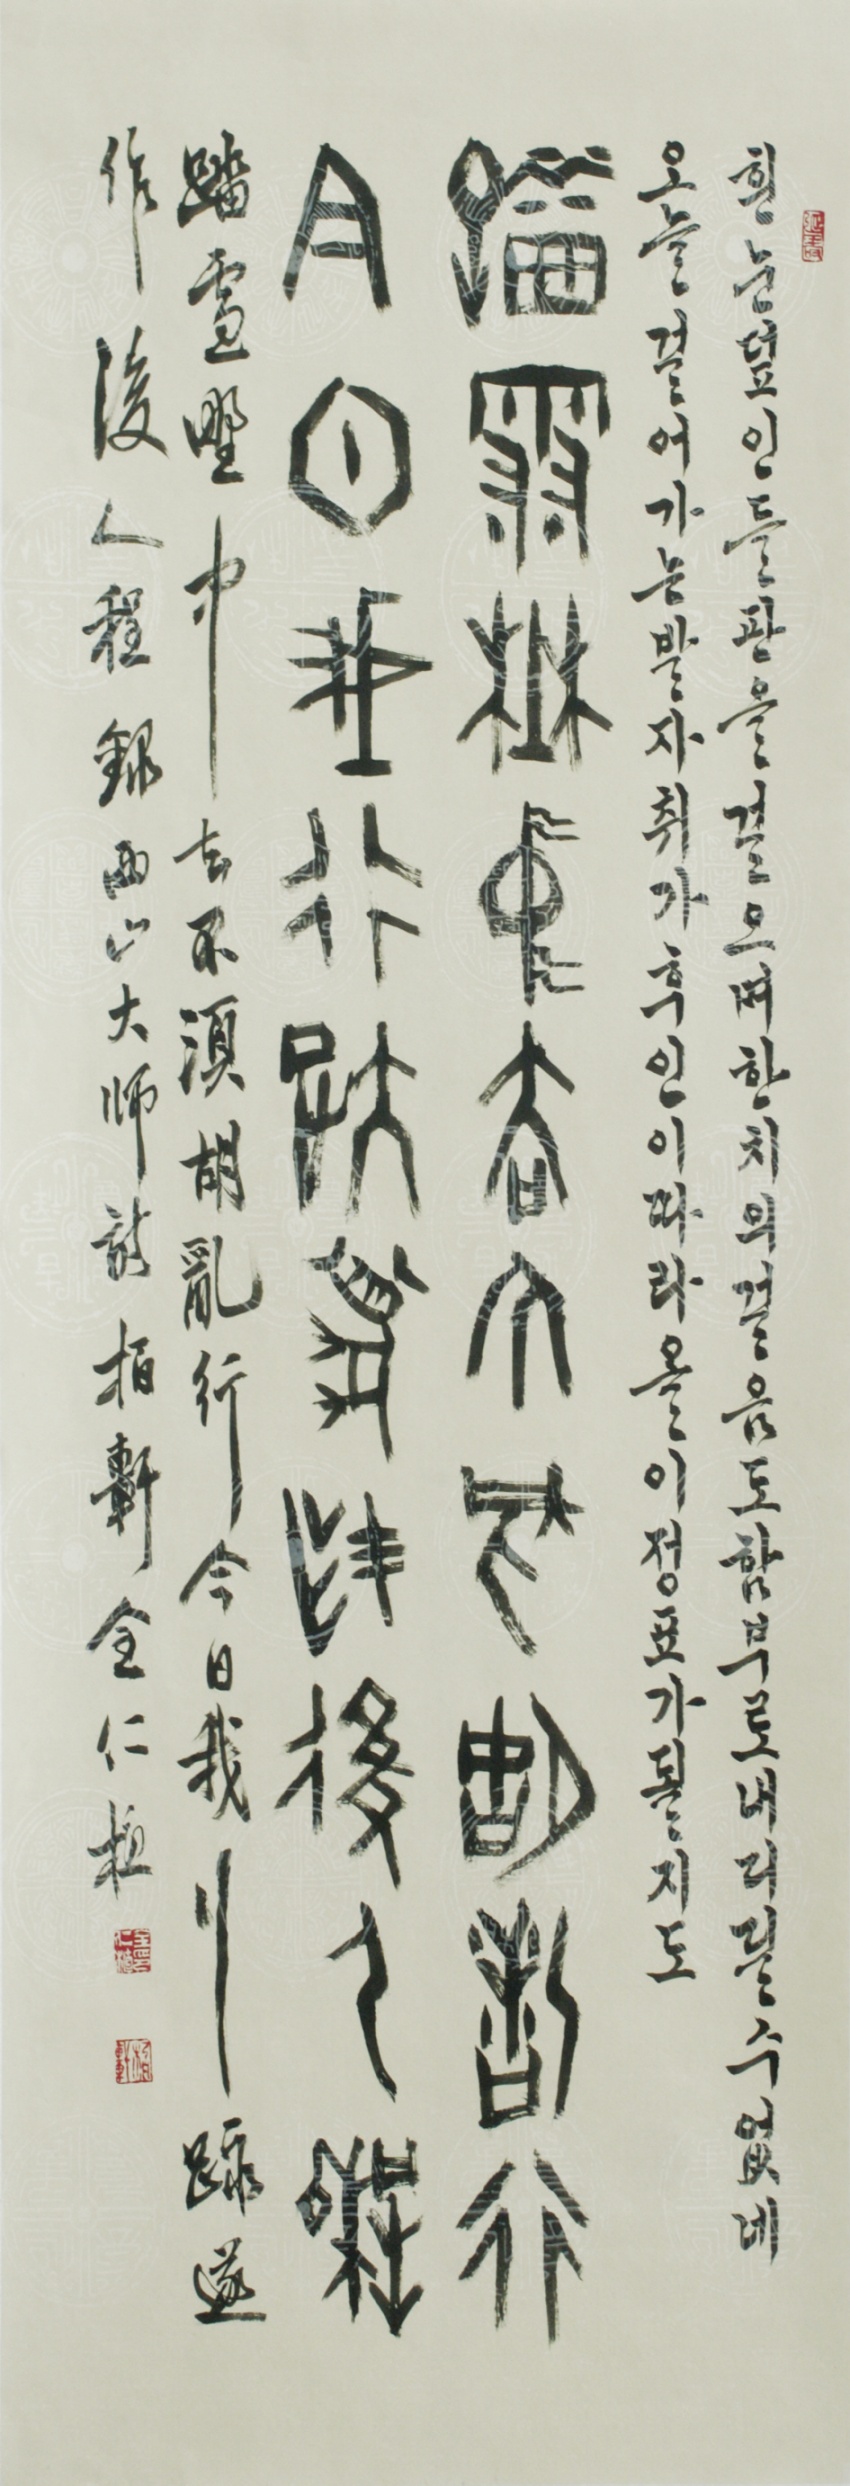 흰눈덮인들판을걸으며한치의걸음도함부로내디딜수없네
오늘걸어가는발자취가후인이따라올이정표가될지도
踏雪野中去不須胡亂行
今日我行跡遂作後人程
踏雪野中去不須胡亂行今日我行跡遂
作後人程 錄西山大師詩 栢軒 全仁植